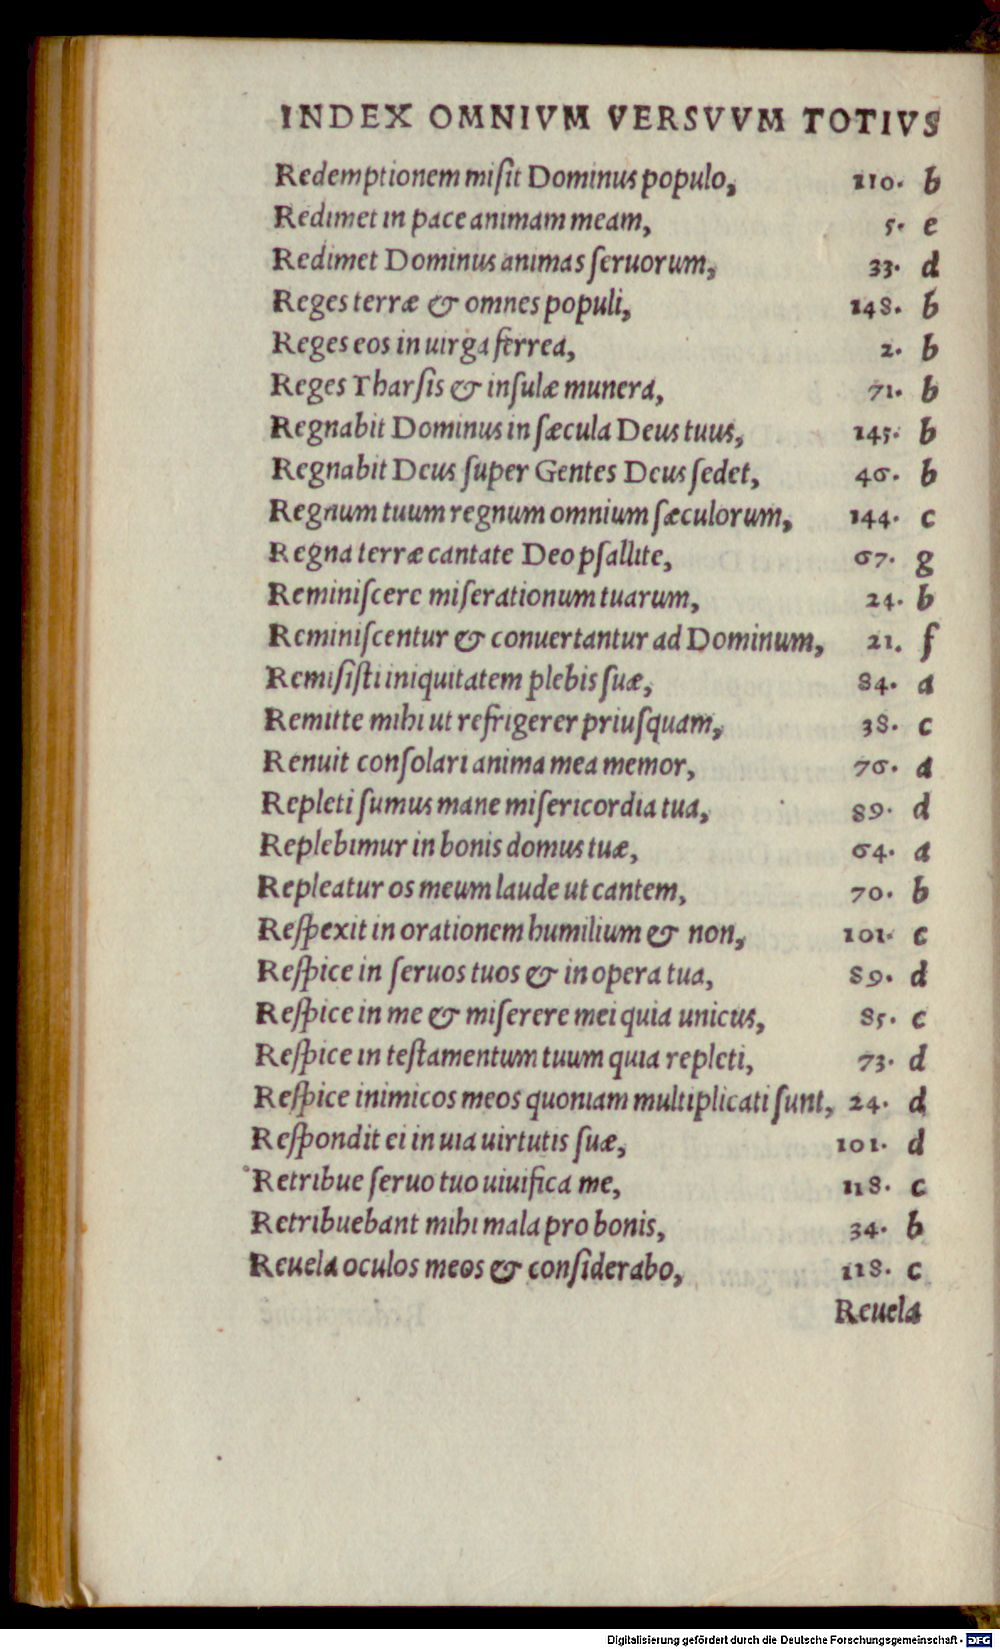 INDEX OMNIVM VERSVVM TOTIVS
Redemptionem miſit Dominus populo, 110. b
Redimet in pace animam meam, 5. e
Redimet Dominus animas ſeruorum, 33. d
Reges terræ & omnes populi, 148. b
Reges eos in uirga ferrea, 2. b
Reges Tharſis & inſulæ munera, 71. b
Regnabit Dominus in ſæcula Deus tuus, 145. b
Regnabit Deus ſuper Gentes Deus ſedet, 46. b
Regnum tuum regnum omnium ſæculorum, 144. c
Regna terræ cantate Deo pſallite, 67. g
Reminiſcere miſerationum tuarum, 24. b
Reminiſcentur & conuertantur ad Dominum, 21. f
Remiſiſti iniquitatem plebis ſuæ, 84. a
Remitte mihi ut refrigerer priuſquam, 38. c
Renuit conſolari anima mea memor, 76. a
Repleti ſumus mane miſericordia tua, 89. d
Replebimur in bonis domus tuæ, 64. a
Repleatur os meum laude ut cantem, 70. b
Reſpexit in orationem humilium & non, 101. c
Reſpice in ſeruos tuos & in opera tua, 89. d
Reſpice in me & miſerere mei quia unicus, 85. c
Reſpice in teſtamentum tuum quia repleti, 73. d
Reſpice inimicos meos quoniam multiplicati ſunt, 24. d
Reſpondit ei in uia uirtutis ſuæ, 101. d
Retribue ſeruo tuo uiuifica me, 118. c
Retribuebant mihi mala pro bonis, 34. b
Reuela oculos meos & conſiderabo, 118. c
Reuela
Digitalisierung gefördert durch die Deutsche Forschungsgemeinschaft - DFG